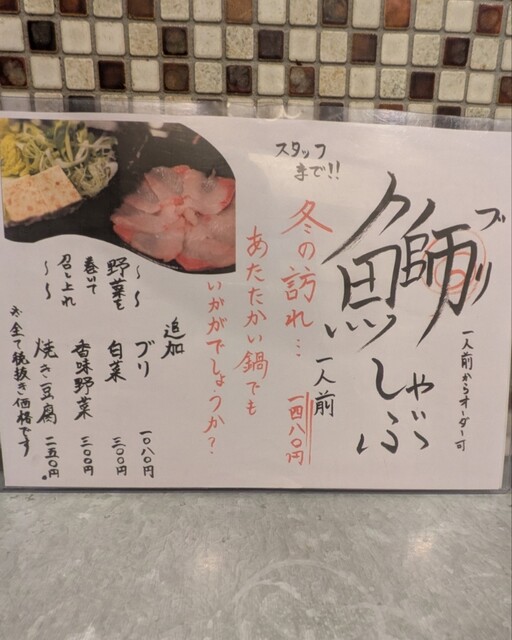 鰤しゃぶ
ブリ
一人前からオーダー可
スタッフ
まで!!
一人前
一四八〇円
冬の訪れ…
あたたかい鍋でも
いかがでしょうか?
追加
ブリ 一〇八〇円
白菜 三〇〇円
香味野菜 三〇〇円
焼き豆腐 二五〇円
〜野菜を
巻いて
召し上れ〜
※全て税抜き価格です。